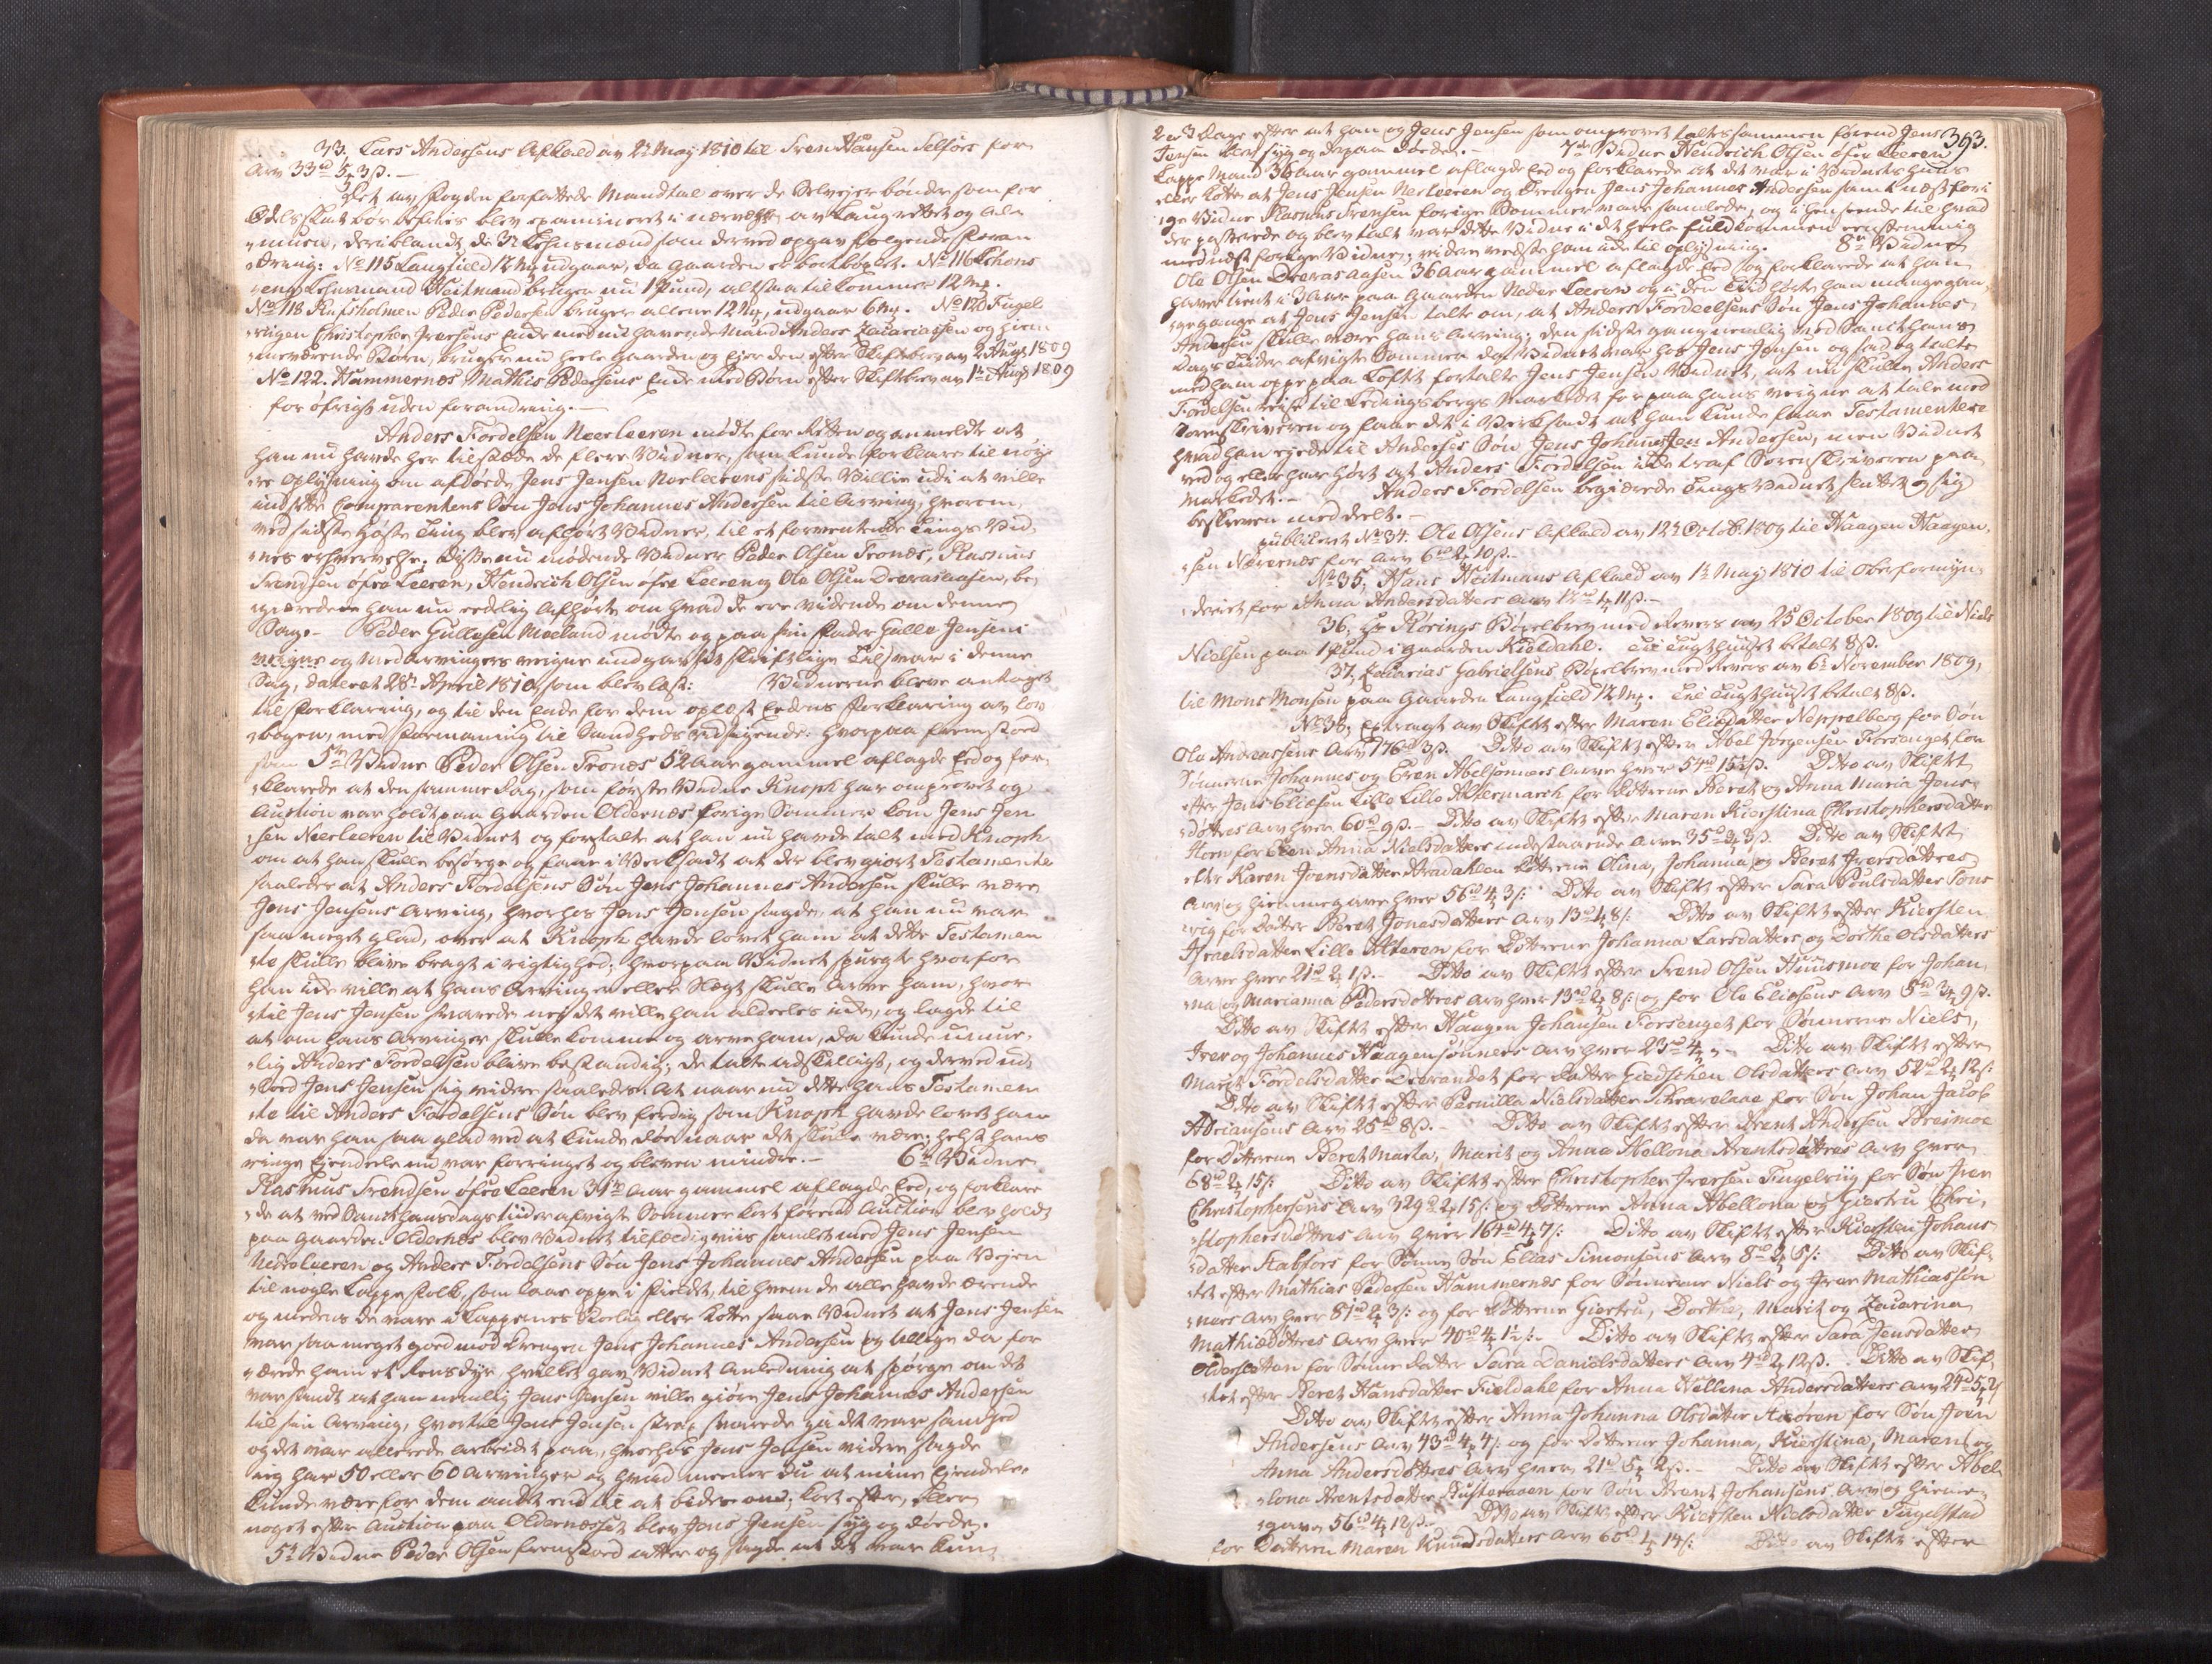 33. Lars Andersens Afkald av 2t May 1810 til Sven Hansen Selfors for
Arv 33rd 5 3ß. —
Det av Fogden forfattede Mandtal over de Selvejerbønder som for
Odelsskat bør befries blev examineret i nærværelse av Laugrettet og Alm
muen, deriblandt de 3de Lehnsmænd som derved opgav følgende Foran
dring: No 115 Langfield 12 mk udgaar, da Gaarden er bortbøxlet. No 116
eng Lehnsmand Heitmand bruger nu 1 Pund, altsaa tilkommer 12 mk.
No 118 Rufsholmen Peder Pedersen bruger allene 12 mk, udgaar 6 mk. No 120 Fugel
riigen Christopher Iversens Enke med nu havende Mand Anders Zacariassen og
værende Børn, bruger nu heele Gaarden og ejer den efter Skiftebrev av 2 Augs 1809
No 122. Hammernæs Mathis Pedersens Enke med Børn efter Skiftebrev av 1t Augs 1809
for øfrigt uden forandring. —
Anders Fordelsen Neerleeren mødte for Retten og anmeldte at
han nu havde her tilstæde de flere Vidner, som kunde forklare til nøye
re Oplysning om afdøde Jens Jensen Neerleerens sidste Villie udi at ville
indsætte Comparentens Søn Jens Johannes Andersen til Arving, hvorom
ved sidste Høste Ting blev afhørt Vidner, til et forventende Tings Vid
nes erhvervelse. Disse nu mødende Vidner Peder Olsen Tronæs, Rasmus
Svendsen øfre Leeren, Hendrich Olsen øfre Leeren og Ole Olsen Drevasaasen, be
giærede han nu eedelig Afhørte om hvad de ere vidende om denne
Sag. — Peder Gullesen Moeland mødte og paa sin Fader Gulle Jensens
veigne og Medarvingers veigne indgav sit skriftlige Tilsvar i denne
Sag, dateret 28t April 1810 som blev læst: Vidnerne bleve antaget
til Forklaring, og til den Ende for dem oplæst Eedens Forklaring av Lov
bogen, med Formaning til Sandheds udsigende. hvorpaa fremstod
som 5te Vidne Peder Olsen Tronæs 52 Aar gammel aflagde Eed og for
klarede at den samme Dag, som første Vidne Knoph har omprovet og
Auction var holdt paa Gaarden Oldernæs forige Sommer kom Jens Jen
sen Neerleeren til Vidnet og fortalte at han nu havde talt med Knoph
om at han skulle besørge og faae i Verksadt at der blev giort Testamente
saaledes at Anders Fordelsens Søn Jens Johannes Andersen skulle være
Jens Jensens Arving, hvorhos Jens Jensen sagde, at han nu var
saa meget glad, over at Knoph havde lovet ham at dette Testamen
te skulle blive bragt i rigtighed; hvorpaa Vidnet spurgte hvorfor
han icke ville at hans Arvinger eller Slægt skulle Arve ham, hvor
til Jens Jensen svarede nej det ville han aldeles icke, og lagde til
at om hans Arvinger skulle komme og arve ham, da kunde umue
lig Anders Fordelsen blive bestandig; de talte adskilligt, og derved ud
lod Jens Jensen sig videre saaledes: At naar nu dette hans Testamen
te til Anders Fordelsens Søn blev færdig som Knoph havde lovet ham
da var han saa glad ved at kunde døe naar det skulle være, helst hans
ringe Ejendele nu var forringet og bleven mindre. — 6te Vidne
Rasmus Svendsen øfre Leeren 31 1/2 Aar gammel aflagde Eed, og forklare
de at ved Sanct Hansdags tiider afvigte Sommer kort førend Auction blev holdt
paa Gaarden Oldernæs blev Vidnet tilfældigviis samlet med Jens Jensen
Nedreleeren og Anders Fordelsens Søn Jens Johannes Andersen paa Vejen
til nogle Lappefolk, som laae oppe i Fieldet, til hvem de alle havde ærende
og medens de vare i Lappernes Boelig eller Kotte saae Vidnet at Jens Jensen
var saa meget god mod Drengen Jens Johannes Andersen og tillige da for
ærede ham et Rensdyr hvilket gav Vidnet Anledning at spørge om det
var sandt at han nemlig Jens Jensen ville giøre Jens Johannes Andersen
til sin Arving, hvortil Jens Jensen strax svarede ja det var sandhed
og det var allerede arbeidet paa, hvorhos Jens Jensen videre sagde
jeg har 50 eller 60 Arvinger og hvad meener du at mine Ejendele
kunde være for dem andet end til at bides om; kort efter, eller
noget efter Auction paa Oldernæsset blev Jens Jensen syg og døde.
5t Vidne Peder Olsen fremstod atter og sagde at det var kun
393.
2 a 3 Dage efter at han og Jens Jensen som omprovet taltes sammen førend Jens
Jensen blev syg og derpaa døde. — 7de Vidne Hendrich Olsen øfre Leeren
Lappe Mand 36 Aar gammel aflagde Eed og forklarede at det var i Vidnets Huus
eller Kotte at Jens Jensen Nerleeren og Drengen Jens Johannes Andersen samt næst fori
ge Vidne Rasmus Svensen forige Sommer vare samlede, og i henseende til hvad
der passerede og blev talt var dette Vidne i det heele fuldkommen eenstemmig
med næst forige Vidne; videre vedste han icke til oplysning. 8te Vidne
Ole Olsen Drevasaasen 36 Aar gammel aflagde Eed og forklarede at han
haver tient i 3 Aar paa Gaarden Neder Leeren og i den Tiid hørte han mange gan
ge at Jens Jensen talte om, at Anders Fordeelsens Søn Jens Johannes
Andersen skulle være hans Arving; den sidste gang nemlig ved Sanct Hans
Dags tiider afvigte Sommer da Vidnet var hos Jens Jensen og sad og talte
med ham oppe paa Loftet fortalte Jens Jensen Vidnet, at nu skulle Anders
Fordelsen reise til Tedingsbergs Markedet for paa hans veigne at tale med
Sorenskriveren og faae det i Verksadt at han kunde faae Testamentere
hvad han ejede til Anderses Søn Jens Johannes Andersen, men Vidnet
ved og eller har hørt at Anders Fordelsen icke traf Sorenskriveren paa
Markedet. — Anders Fordelsen begiærede Tings Vidnet sluttet og sig
beskreven meddeelt. —
publiceret No 34. Ole Olsens Afkald av 12t Octobr 1809 til Haagen Haagen
sen Næverness for Arv 6rd 2 10ß. —
No 35, Hans Heitmans Afkald av 1t May 1810 til Oberformyn
deriet for Anna Andersdatters Arv 12rd 1 11ß. —
36, Hr Rørings Bøxelbrev med Revers av 25 October 1809 til Niels
Nielsen paa 1 Pund i Gaarden Kieldahl. Til Tugthuuset betalt 8ß.
37, Zacarias Gabrielsens Bøxelbrev med Revers av 6t November 1809,
til Mons Monsen paa Gaarden Langfield 12 mk. Til Tugthuuset betalt 8ß.
No 38, Extract av Skiftet efter Maren Eliedatter Neppelberg for Søn
Ole Andreassens Arv 176rd 3ß. Dito av Skiftet efter Abel Jørgensen Forsenget for
Sønnerne Johannes og Even Abelsønners Arv hver 54rd 15 1/2ß. Dito av Skiftet
efter Jens Eliesen Lille Altermarch for Døtrene Beret og Anna Maria Jens
døtres Arv hver 60rd 9ß. — Dito av Skiftet efter Maren Kierstina Christophersdatter
Horn for Anna Nielsdatters indestaaende Arv 35rd 3 3ß. Dito av Skiftet
efter Karen Joensdatter Bradahlen Døtrene Elina, Johanna og Beret Iversdøtres
Arv og hiemmegave hver 56rd 4 3ß: Dito av Skiftet efter Sara Poulsdatter
vig for Datter Beret Jonasdatters Arv 13rd 4 8ß: Dito av Skiftet efter Kiersten
Israelsdatter Lille Alteren for Døtrene Johanna Larsdatters og Dorthe Olsdatters
Arv hver 21rd 2 1ß. — Dito av Skiftet efter Svend Olsen Huusmoe for Johan
na og Marianna Pedersdøtres Arv hver 13rd 2 8ß: og for Ole Eliesens Arv 5rd 3 9ß.
Dito av Skiftet efter Haagen Johansen Forsenget for Sønnerne Niels,
Iver og Johannes Haagensønners Arv hver 23rd 4 „ — Dito av Skiftet efter
Marit Fordelsdatter Drevandet for Datter Giedschen Olsdatters Arv 52rd 2 12ß:
Dito av Skiftet efter Pernilla Nielsdatter for Søn Johan Jacob
Adriansens Arv 26rd 8ß. — Dito av Skiftet efter Arent Andersen Breimoe
for Døtrene Beret Marta, Marit og Anna Abellona Arentsdøtres Arv hver
68rd 2 15ß: Dito av Skiftet efter Christopher Iversen Fugelriig for Søn Iver
Christophersens Arv 329rd 2 15ß: og Døtrene Anna Abellona og Giertru Chri
stophersdøtres Arv hver 164rd 4 7ß: Dito av Skiftet efter Kiersten Johans
datter Stabfors for Sønne Søn Elias Simonsens Arv 8rd 2 5ß: Dito av Skif
tet efter Mathias Pedersen Hammernæs for Sønnerne Niels og Iver Mathiassøn
ners Arv hver 81rd 2 3ß: og for Døtrene Giertru, Dorthe, Marit og Zacarina
Mathiædøtres Arv hver 40rd 4 1 1/2ß. — Dito av Skiftet efter Sara Jensdatter
Oldersletten for Sønne Datter Sara Danielsdatters Arv 4rd 2 12ß. Dito av Skif
tet efter Beret Hansdatter Fieldahl for Anna Hellena Andersdatters Arv 24rd 5 2ß
Dito av Skiftet efter Anna Johanna Olsdatter for Søn Joen
Andersens Arv 43rd 4 4ß: og for Døtrene Johanna, Kierstina, Maren og
Anna Andersdøtres Arv hver 21rd 5 2ß. — Dito av Skiftet efter Abel
lona Arentsdatter for Søn Arent Johansens Arv og hieme
gave 56rd 4 12ß. — Dito av Skiftet efter Kiersten Nielsdatter Fugelstad
for Datteren Maren Knudsdatters Arv 60rd 1 14ß: Dito av Skiftet efter